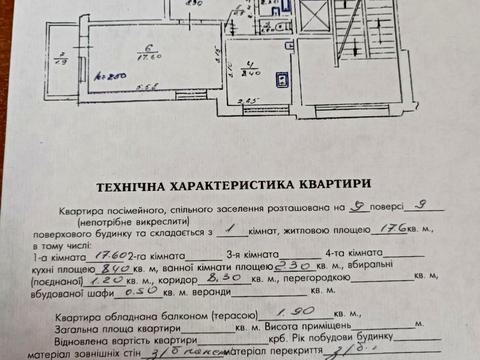 2.90
2
1.9
6
17.60
h=2.50
5.52
3.15
3.10
4
8.40
2.25
ТЕХНІЧНА ХАРАКТЕРИСТИКА КВАРТИРИ
Квартира посімейного, спільного заселення розташована на 9 поверсі 9
(непотрібне викреслити)
поверхового будинку та складається з 1 кімнат, житловою площею 17.6 кв. м.,
в тому числі:
1-а кімната 17.60 2-га кімната 3-я кімната 4-та кімната
кухні площею 8.40 кв. м, ванної кімнати площею 2.30 кв. м., вбиральні
(поєднаної) 1.20 кв. м., коридор 8.30 кв. м., перегородкою кв. м.,
вбудованої шафи 0.50 кв. м. веранди кв. м.
Квартира обладнана балконом (терасою) 1.90 кв. м.,
Загальна площа квартири кв. м. Висота приміщень м.
Відновлена вартість квартири крб. Рік побудови будинку
матеріал зовнішніх стін з/б панел матеріал перекриття з/б.